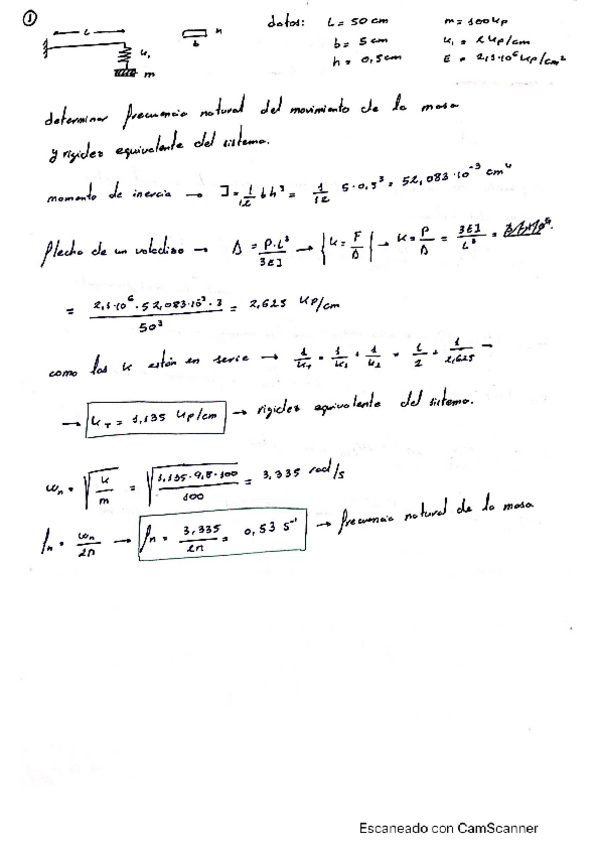 ① datos: L = 50 cm m = 100 Kp
b = 5 cm K₁ = 2 Kp/cm
h = 0,5 cm E = 2,1·10⁶ Kp/cm²
L h
b K₁
m
determinar frecuencia natural del movimiento de la masa
y rigidez equivalente del sistema.
momento de inercia → I = 1/12 b h³ = 1/12 5·0,5³ = 52,083·10⁻³ cm⁴
flecha de un voladizo → Δ = P·L³/3EI → {K = F/Δ} → K = P/Δ = 3EI/L³ =
= 2,1·10⁶·52,083·10⁻³·3 / 50³ = 2,625 Kp/cm
como las K están en serie → 1/K_T = 1/K₁ + 1/K₂ = 1/2 + 1/2,625 →
→ K_T = 1,135 Kp/cm → rigidez equivalente del sistema.
ωn = √(K/m) = √(1,135·9,8·100/100) = 3,335 rad/s
fn = ωn/2π → fn = 3,335/2π = 0,53 s⁻¹ → frecuencia natural de la masa
Escaneado con CamScanner